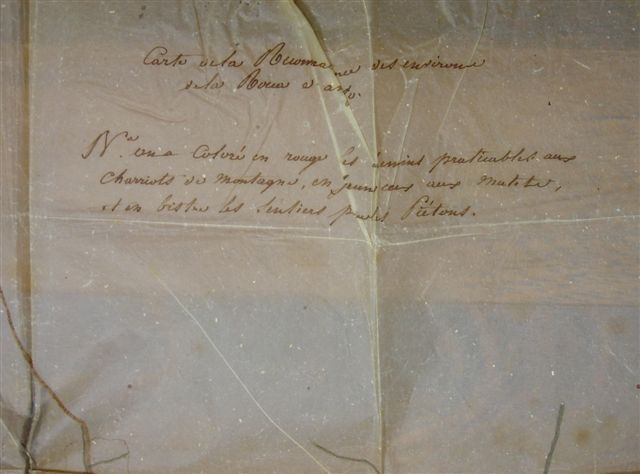 Carte de la Reconnance des environs
de la Roca d'
Na on a Coloré en rouge les chemins praticables aux
Charriots de montagne, en jaune ceux aux Mulets,
et en bistre les Sentiers pr les Piétons.